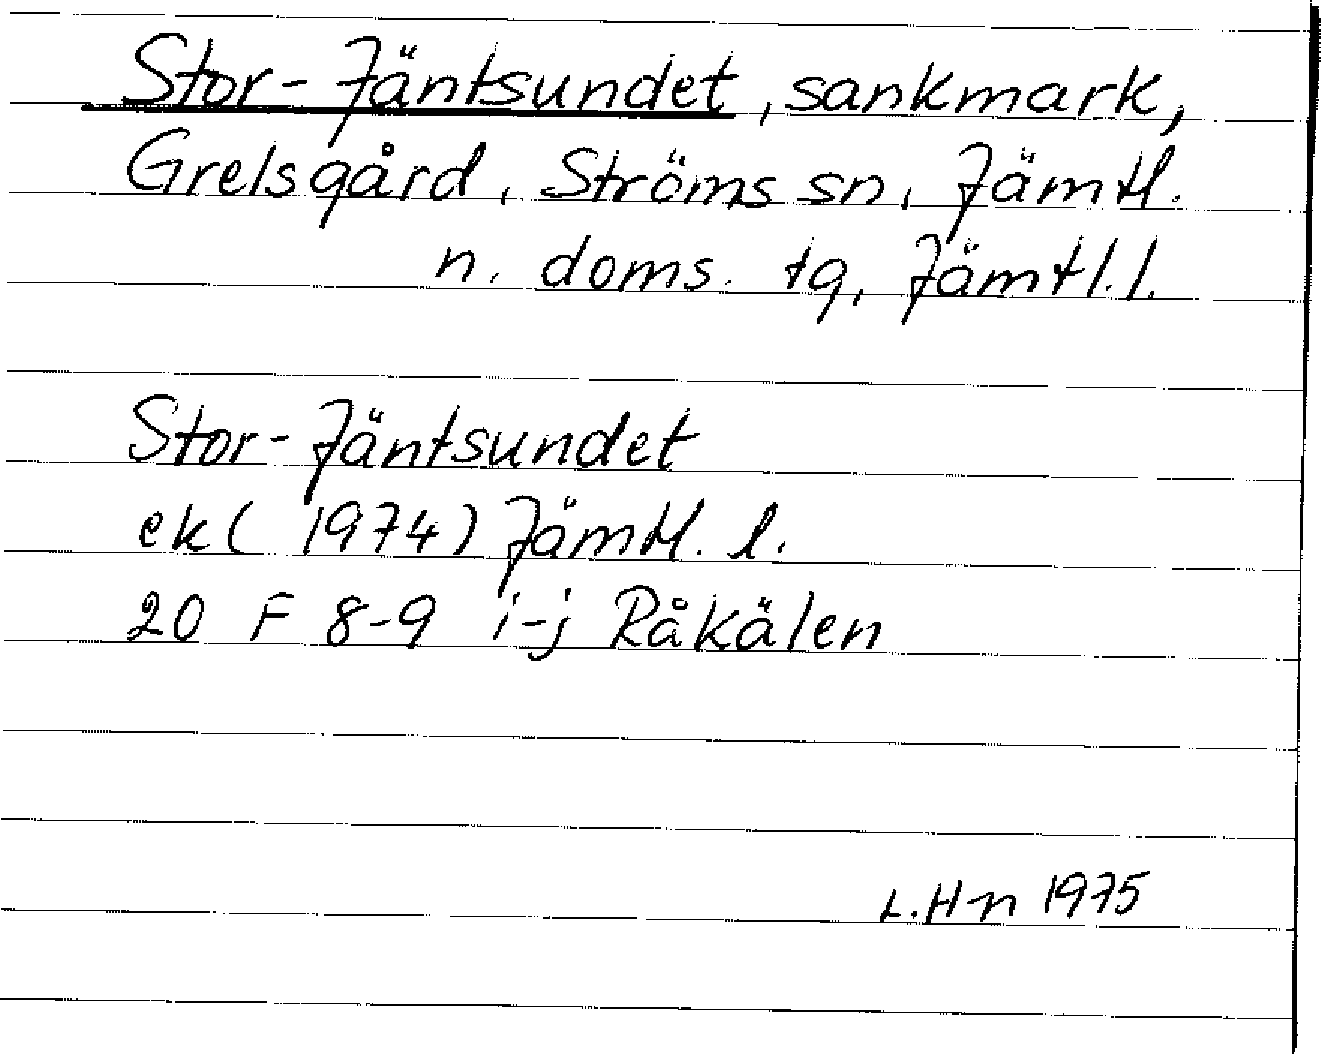 Stor-Jäntsundet, sankmark,
Grelsgård, Ströms sn, Jämtl.
n. doms. tg, Jämtl. l.
Stor-Jäntsundet
ek (1974) Jämtl. l.
20 F 8-9 i-j Råkälen
L. Hn 1975